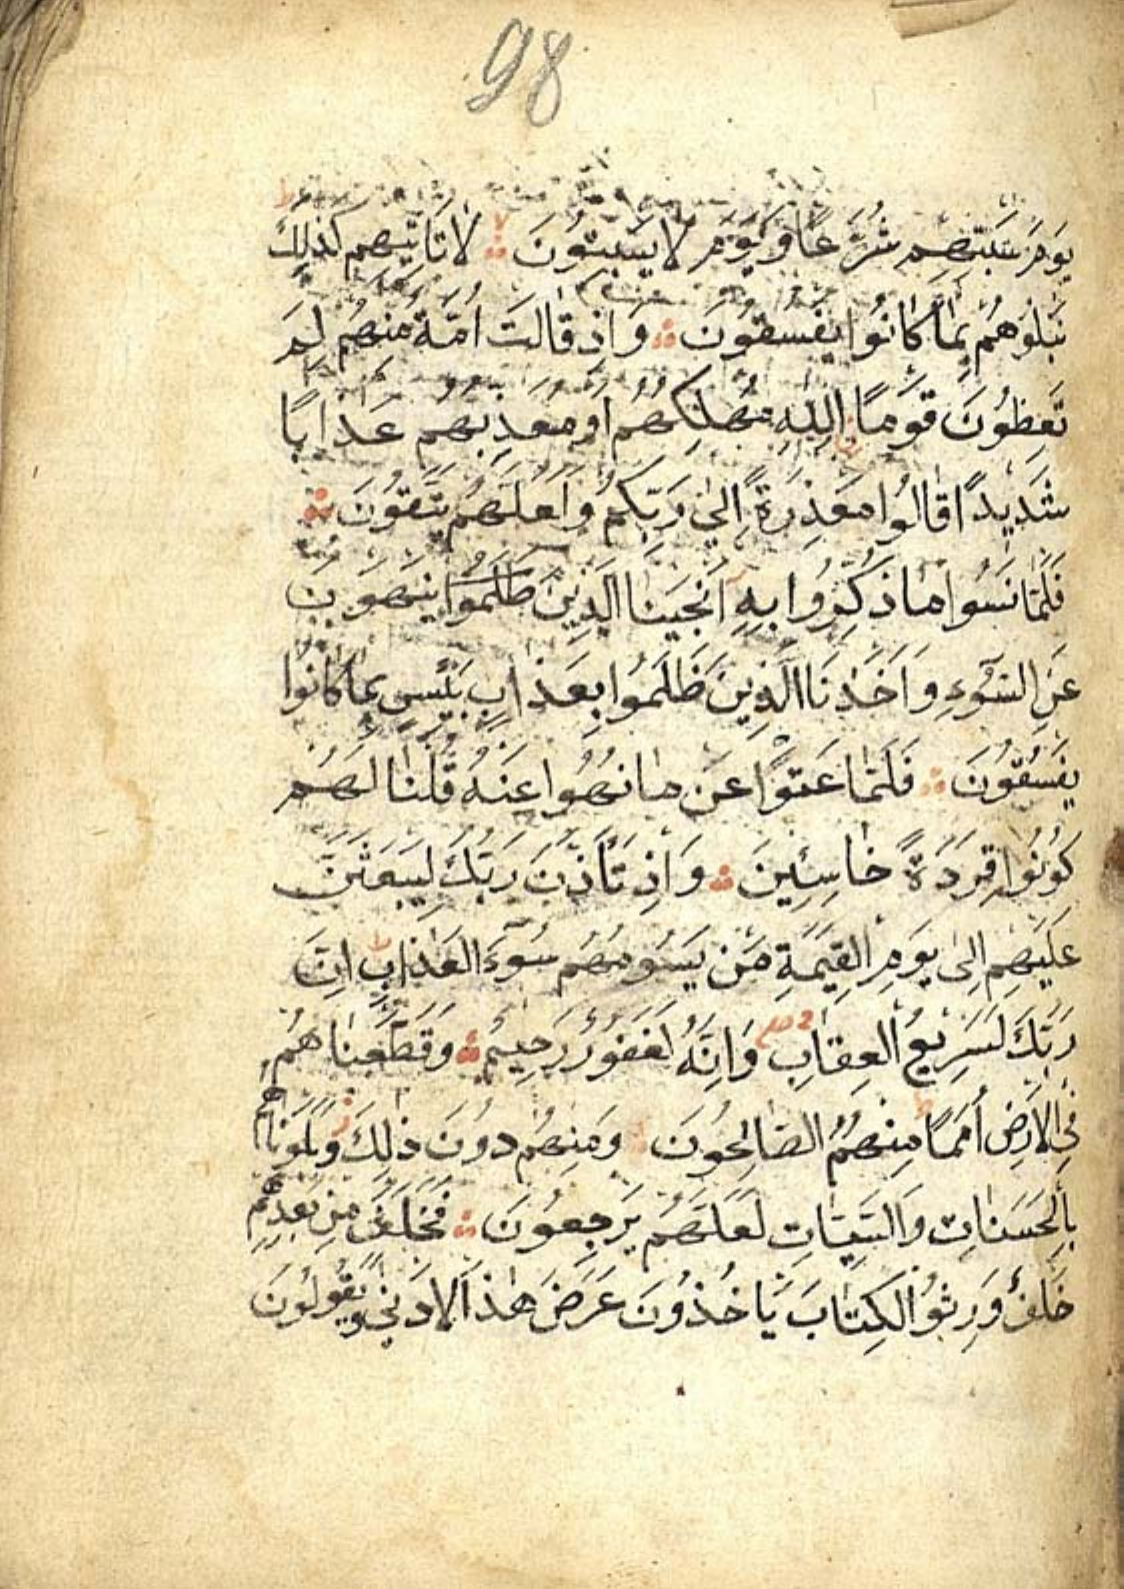 98
يَوْمَ سَبْتِهِمْ شُرَّعًا وَيَوْمَ لَا يَسْبِتُونَ لَا تَاتِيهِمْ كَذٰلِكَ
نَبْلُوهُمْ بِمَا كَانُوا يَفْسُقُونَ وَاِذْ قَالَتْ اُمَّةٌ مِنْهُمْ لِمَ
تَعِظُونَ قَوْمًا اللّٰهُ مُهْلِكُهُمْ اَوْ مُعَذِّبُهُمْ عَذَابًا
شَدِيدًا قَالُوا مَعْذِرَةً اِلٰى رَبِّكُمْ وَلَعَلَّهُمْ يَتَّقُونَ
فَلَمَّا نَسُوا مَا ذُكِّرُوا بِهٖ اَنْجَيْنَا الَّذِينَ ظَلَمُوا يَنْهَوْنَ
عَنِ السُّوءِ وَاَخَذْنَا الَّذِينَ ظَلَمُوا بِعَذَابٍ بَئِيسٍ بِمَا كَانُوا
يَفْسُقُونَ فَلَمَّا عَتَوْا عَنْ مَا نُهُوا عَنْهُ قُلْنَا لَهُمْ
كُونُوا قِرَدَةً خَاسِئِينَ وَاِذْ تَاَذَّنَ رَبُّكَ لَيَبْعَثَنَّ
عَلَيْهِمْ اِلٰى يَوْمِ الْقِيٰمَةِ مَنْ يَسُومُهُمْ سُوءَ الْعَذَابِ ط اِنَّ
رَبَّكَ لَسَرِيعُ الْعِقَابِ وَاِنَّهُ لَغَفُورٌ رَحِيمٌ وَقَطَّعْنَاهُمْ
فِي الْاَرْضِ اُمَمًا ط مِنْهُمُ الصَّالِحُونَ وَمِنْهُمْ دُونَ ذٰلِكَ ز وَبَلَوْنَاهُمْ
بِالْحَسَنَاتِ وَالسَّيِّئَاتِ لَعَلَّهُمْ يَرْجِعُونَ فَخَلَفَ مِنْ بَعْدِهِمْ
خَلْفٌ وَرِثُوا الْكِتَابَ يَاخُذُونَ عَرَضَ هٰذَا الْاَدْنٰى وَيَقُولُونَ